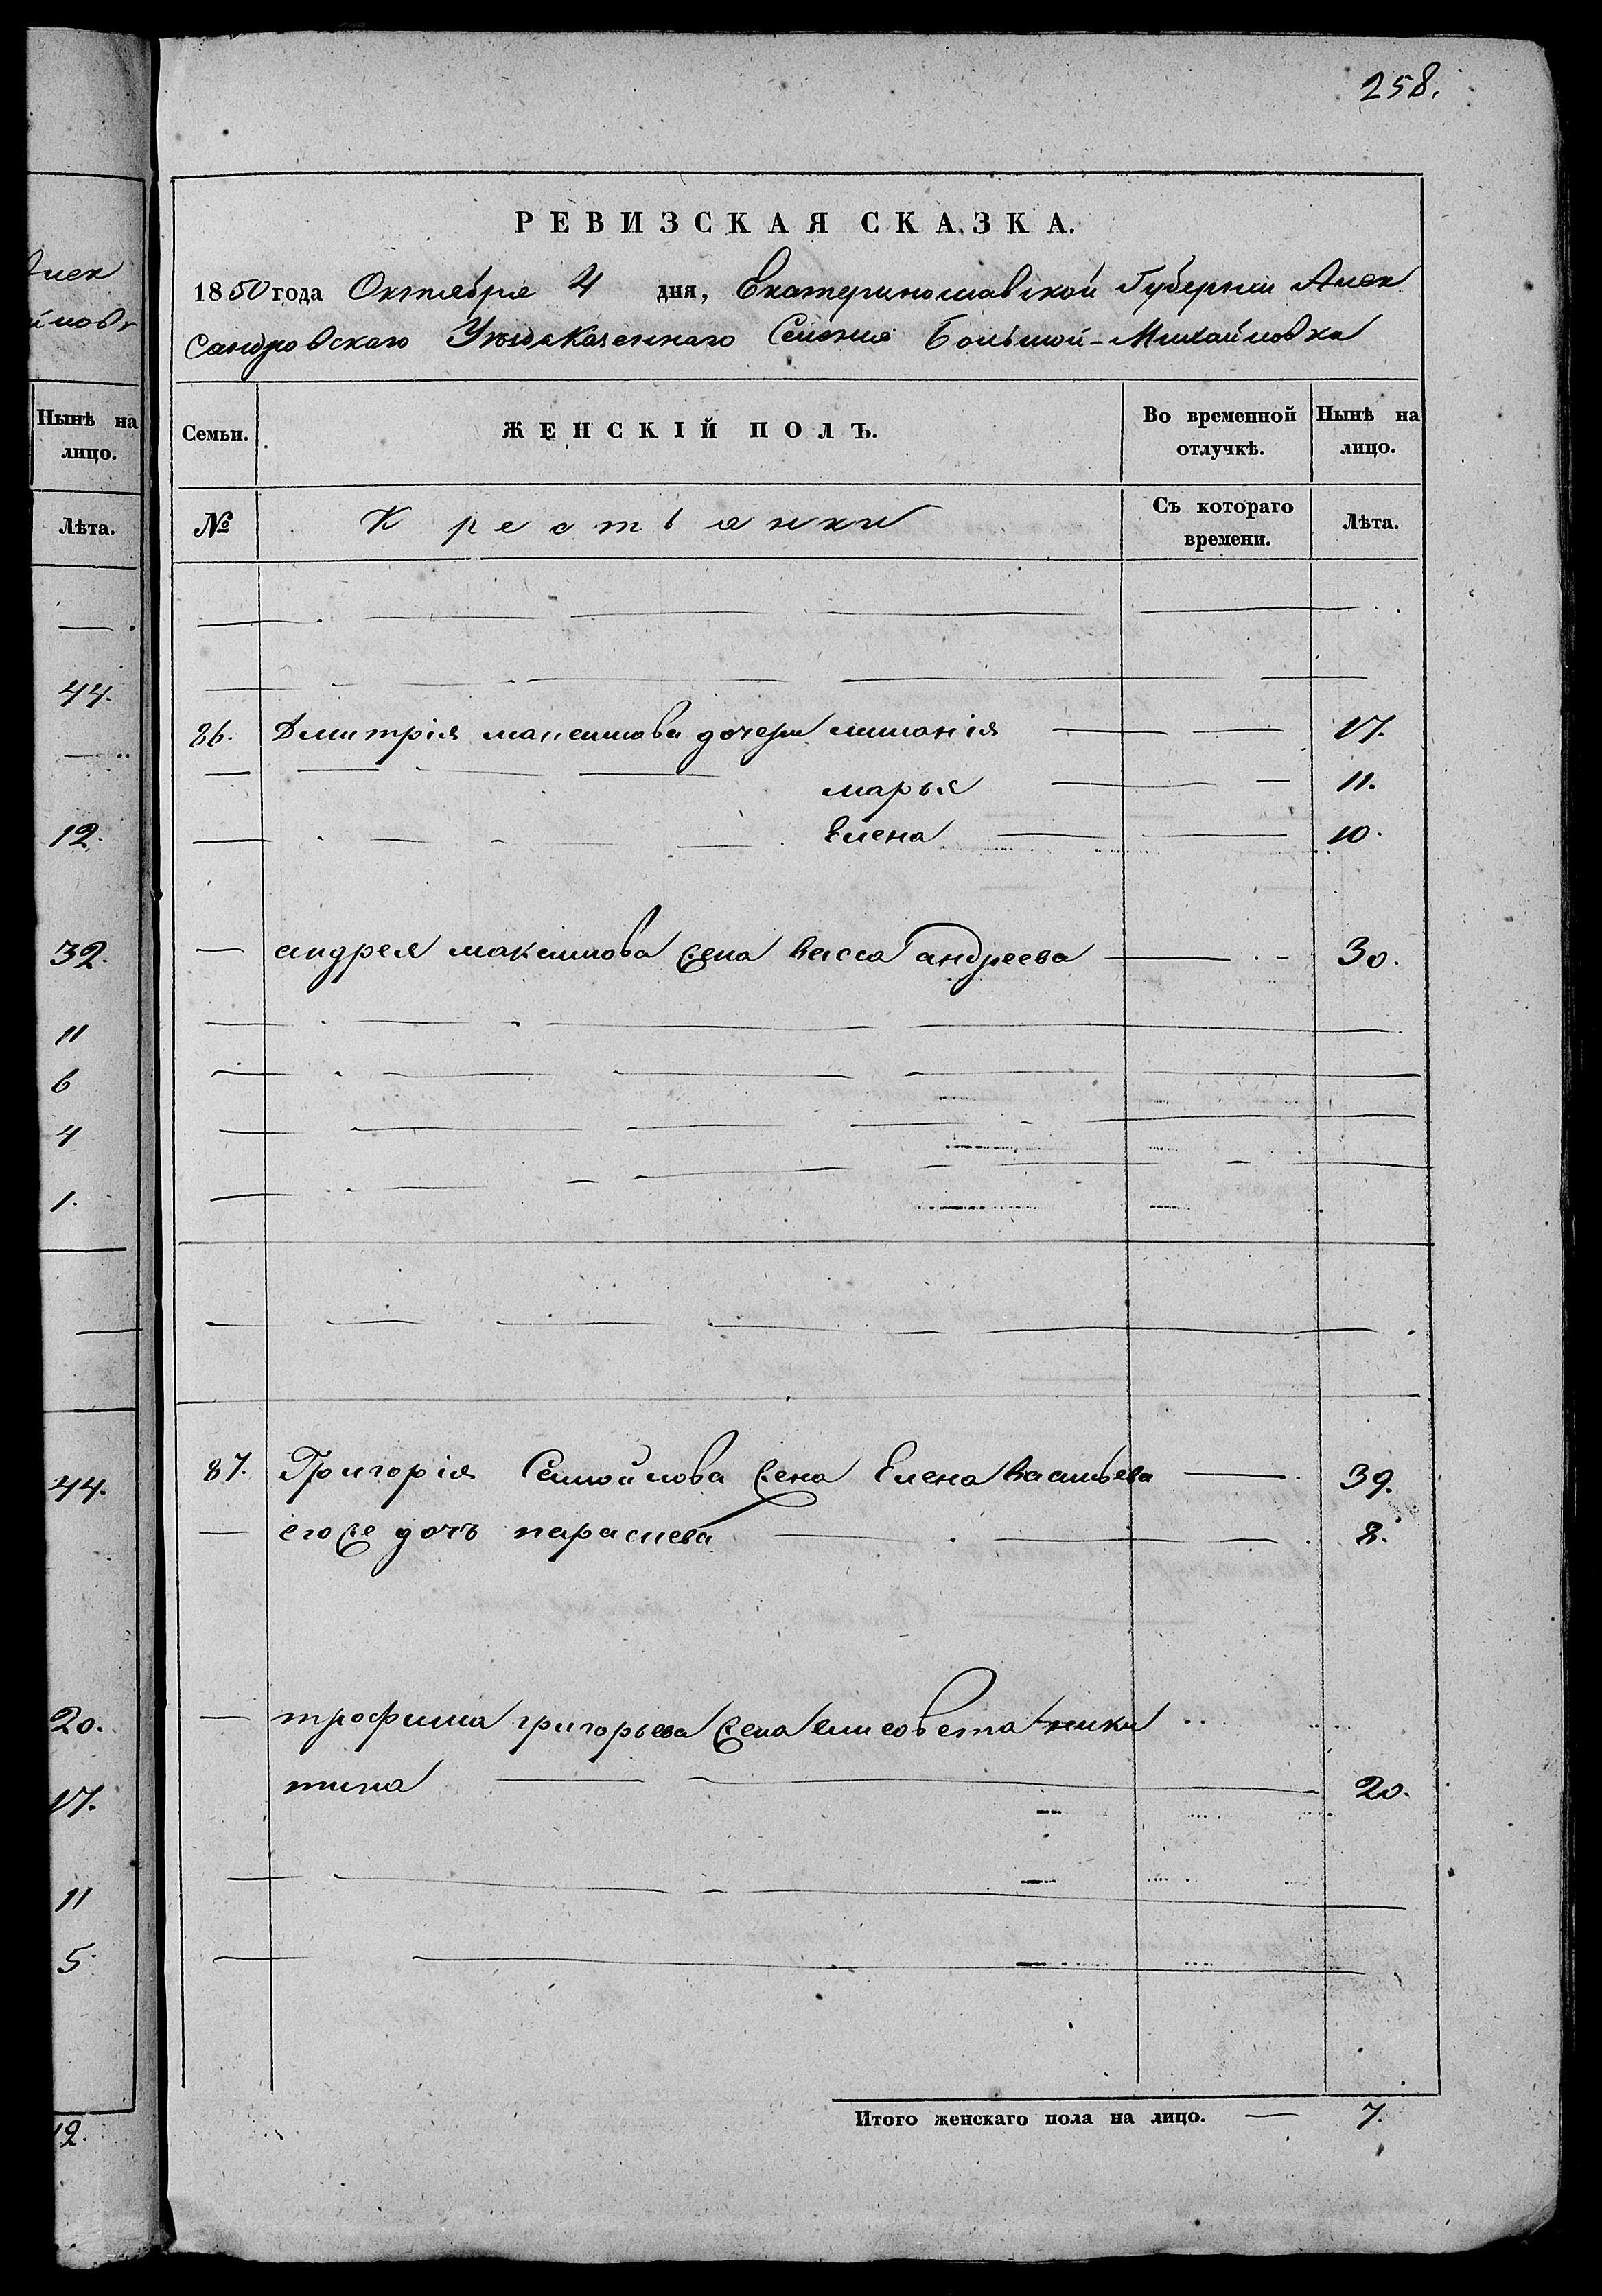 258.
РЕВИЗСКАЯ СКАЗКА.
1850 года Октября 4 дня, Екатеринославской Губернии Алек
сандровскаго Уѣзда Казеннаго Селения Большой-Михайловки
Семьи. ЖЕНСКІЙ ПОЛЪ. Во временной отлучкѣ. Нынѣ на лицо.
№ Крестьянки Съ котораго времени. Лѣта.
86. Дмитрія максимова дочери 17.
марья 11.
Елена 10.
андрея максимова жена васса андреева 30.
87. Григорія Самойлова жена Елена васильева 39.
егоже дочь параскева 8.
трофима григорьева жена елисовета ники
тина 20.
Итого женскаго пола на лицо. 7.
Нынѣ на
лицо.
Лѣта.
44.
12.
32.
11
6
4
1.
44.
20.
17.
11
5
12.